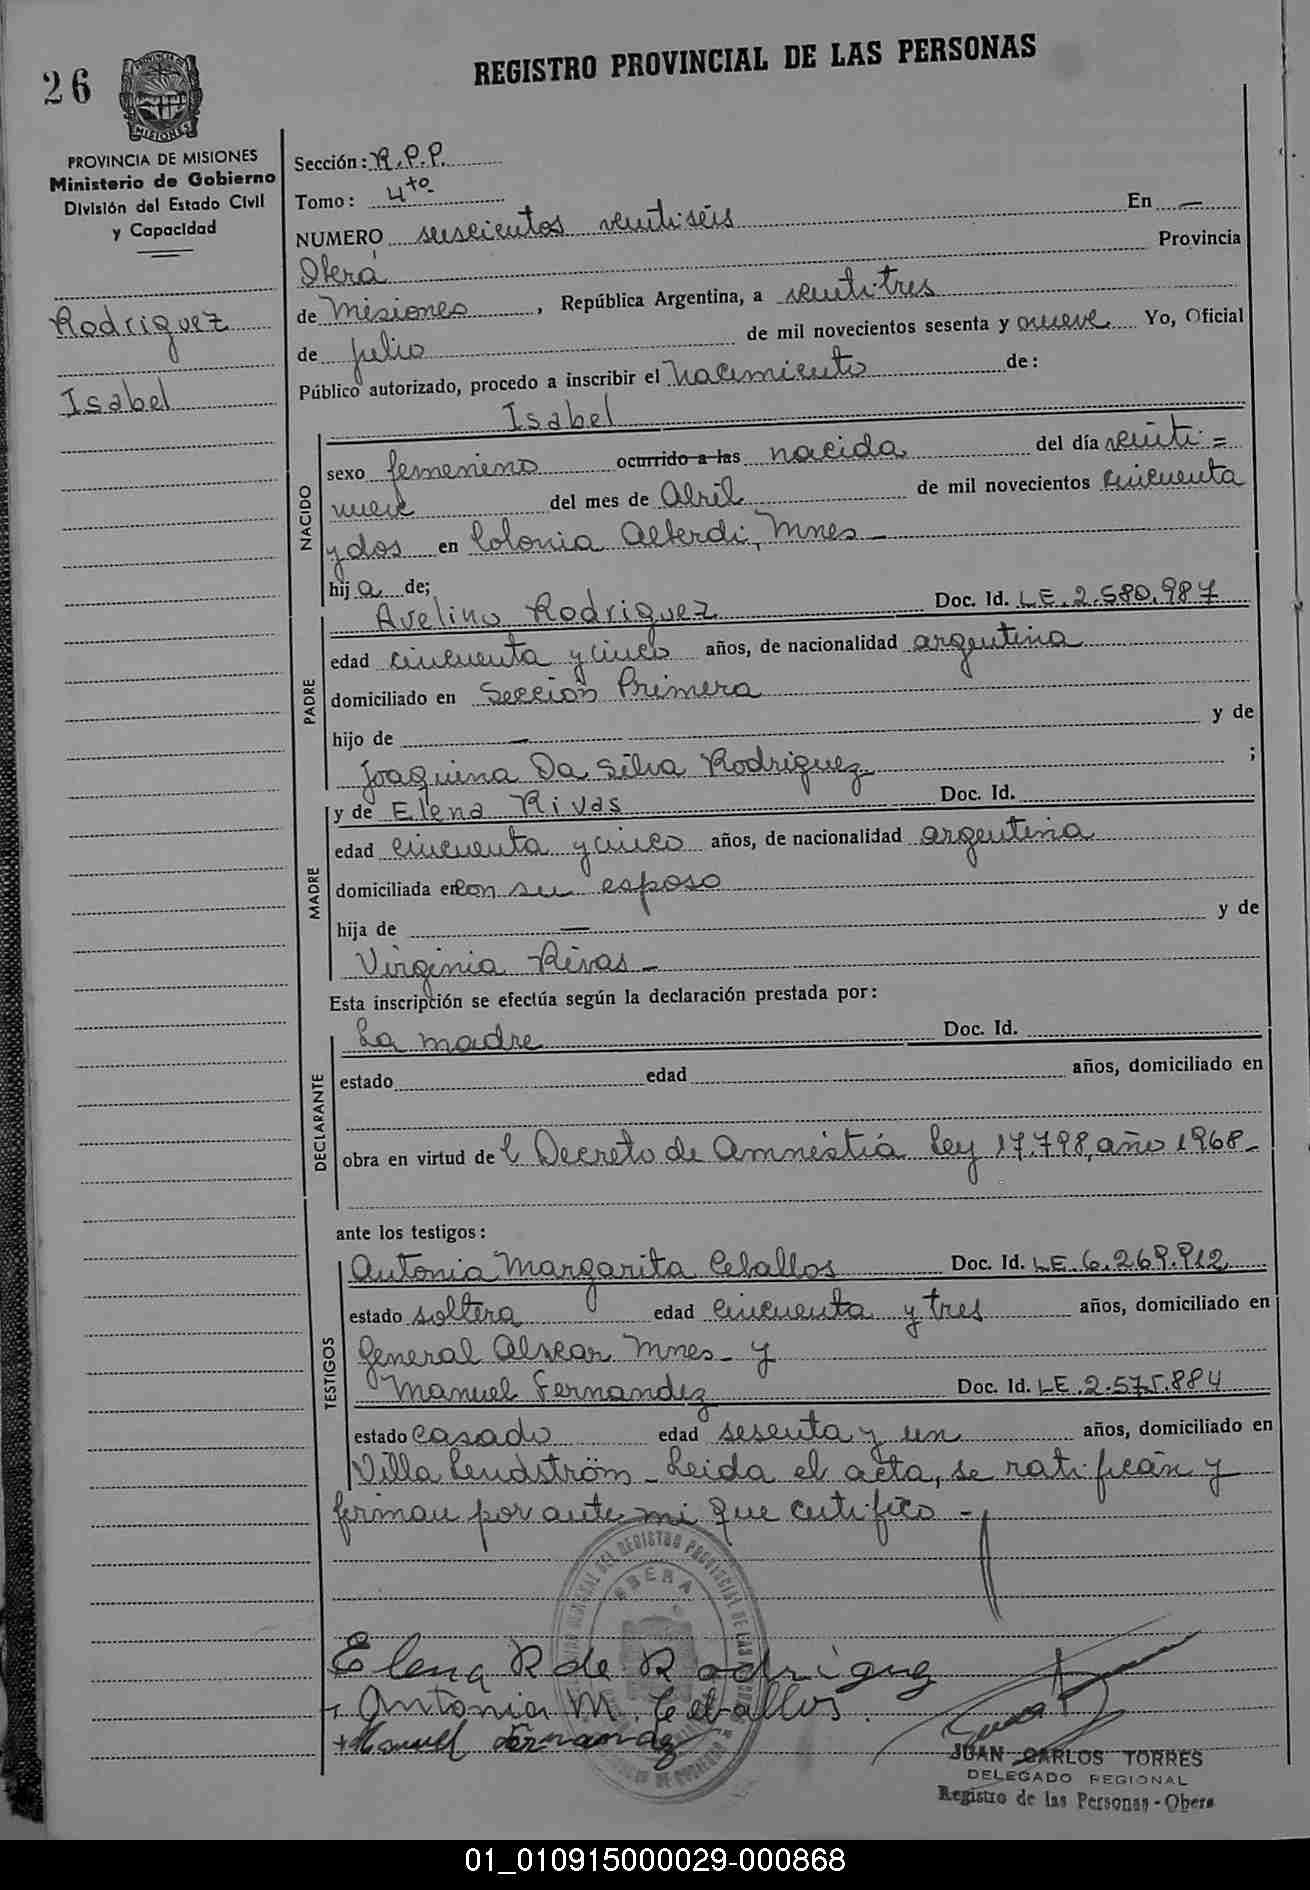 26
REGISTRO PROVINCIAL DE LAS PERSONAS
PROVINCIA DE MISIONES
Ministerio de Gobierno
División del Estado Civil
y Capacidad
Rodriguez
Isabel
Sección: R.P.P.
Tomo: 4to
NUMERO seiscientos veintiséis En —
Oberá Provincia
de Misiones, República Argentina, a veintitres
de Julio de mil novecientos sesenta y nueve Yo, Oficial
Público autorizado, procedo a inscribir el nacimiento de:
Isabel
NACIDO
sexo femenino ocurrido a las nacida del día veinti=
nueve del mes de Abril de mil novecientos cincuenta
y dos en Colonia Alberdi, Mnes –
hija de;
PADRE
Avelino Rodriguez Doc. Id. LE.2.580.987
edad cincuenta y cinco años, de nacionalidad argentina
domiciliado en Sección Primera
hijo de — y de
Joaquina Da Silva Rodriguez ;
MADRE
y de Elena Rivas Doc. Id.
edad cincuenta y cinco años, de nacionalidad argentina
domiciliada en con su esposo
hija de — y de
Virginia Rivas –
Esta inscripción se efectúa según la declaración prestada por:
DECLARANTE
La madre Doc. Id.
estado edad años, domiciliado en
obra en virtud de l Decreto de Amnistía Ley 17.798, año 1968–
ante los testigos:
TESTIGOS
Antonia Margarita Ceballos Doc. Id. LE.6.269.912
estado soltera edad cincuenta y tres años, domiciliado en
General Alvear Mnes – y
Manuel Fernandez Doc. Id. LE.2.575.884
estado casado edad sesenta y un años, domiciliado en
Villa Lendström – Leida el acta, se ratificán y
firman por ante mi que certifico –
DEL REGISTRO PROVINCIAL DE LAS
OBERA
Elena R de Rodriguez
+ Antonia M. Ceballos.
+ Manuel Fernandez
JUAN CARLOS TORRES
DELEGADO REGIONAL
Registro de las Personas - Obera
01_010915000029-000868